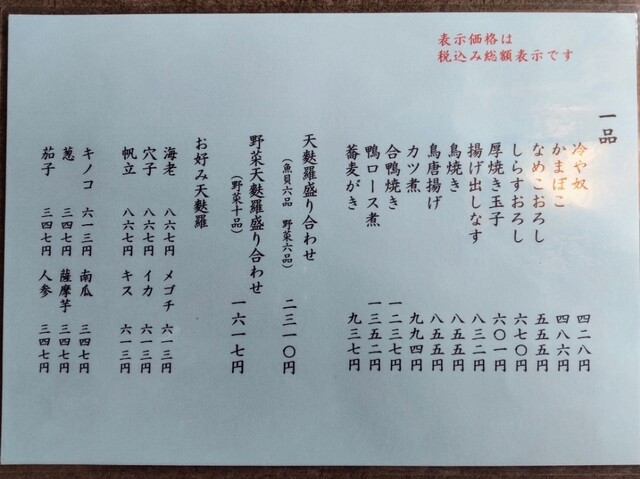 表示価格は
税込み総額表示です
一品
冷や奴 四二八円
かまぼこ 四八六円
なめこおろし 五五五円
しらすおろし 六七〇円
厚焼き玉子 六〇一円
揚げ出しなす 八三二円
鳥焼き 八五五円
鳥唐揚げ 八五五円
カツ煮 九九四円
合鴨焼き 一二三七円
鴨ロース煮 一三五二円
蕎麦がき 九三七円
天麩羅盛り合わせ 二三一〇円
(魚貝六品 野菜六品)
野菜天麩羅盛り合わせ 一六一七円
(野菜十品)
お好み天麩羅
海老 八六七円 メゴチ 六一三円
穴子 八六七円 イカ 六一三円
帆立 八六七円 キス 六一三円
キノコ 六一三円 南瓜 三四七円
葱 三四七円 薩摩芋 三四七円
茄子 三四七円 人参 三四七円